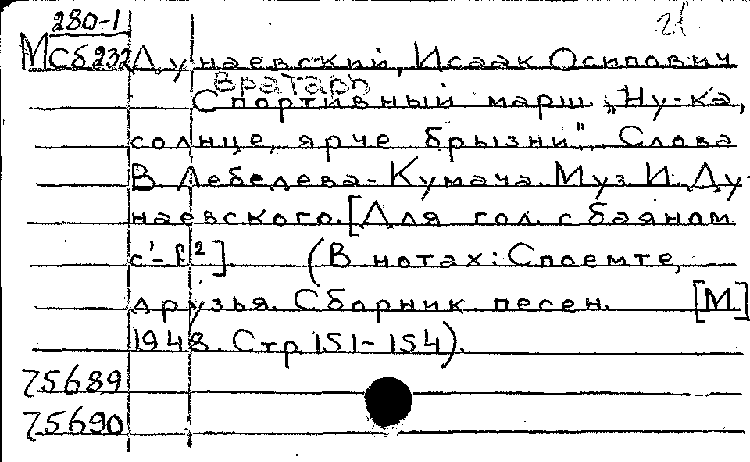 280-1
21
МСб232 Дунаевский, Исаак Осипович
Вратарь
Спортивный марш „Ну-ка,
солнце, ярче брызни". Слова
В. Лебедева-Кумача. Муз. И. Ду
наевского. [Для гол. с баяном
c¹-f²]. (В нотах: Споемте,
друзья. Сборник песен. [М]
1948. Стр. 151-154).
75689
75690